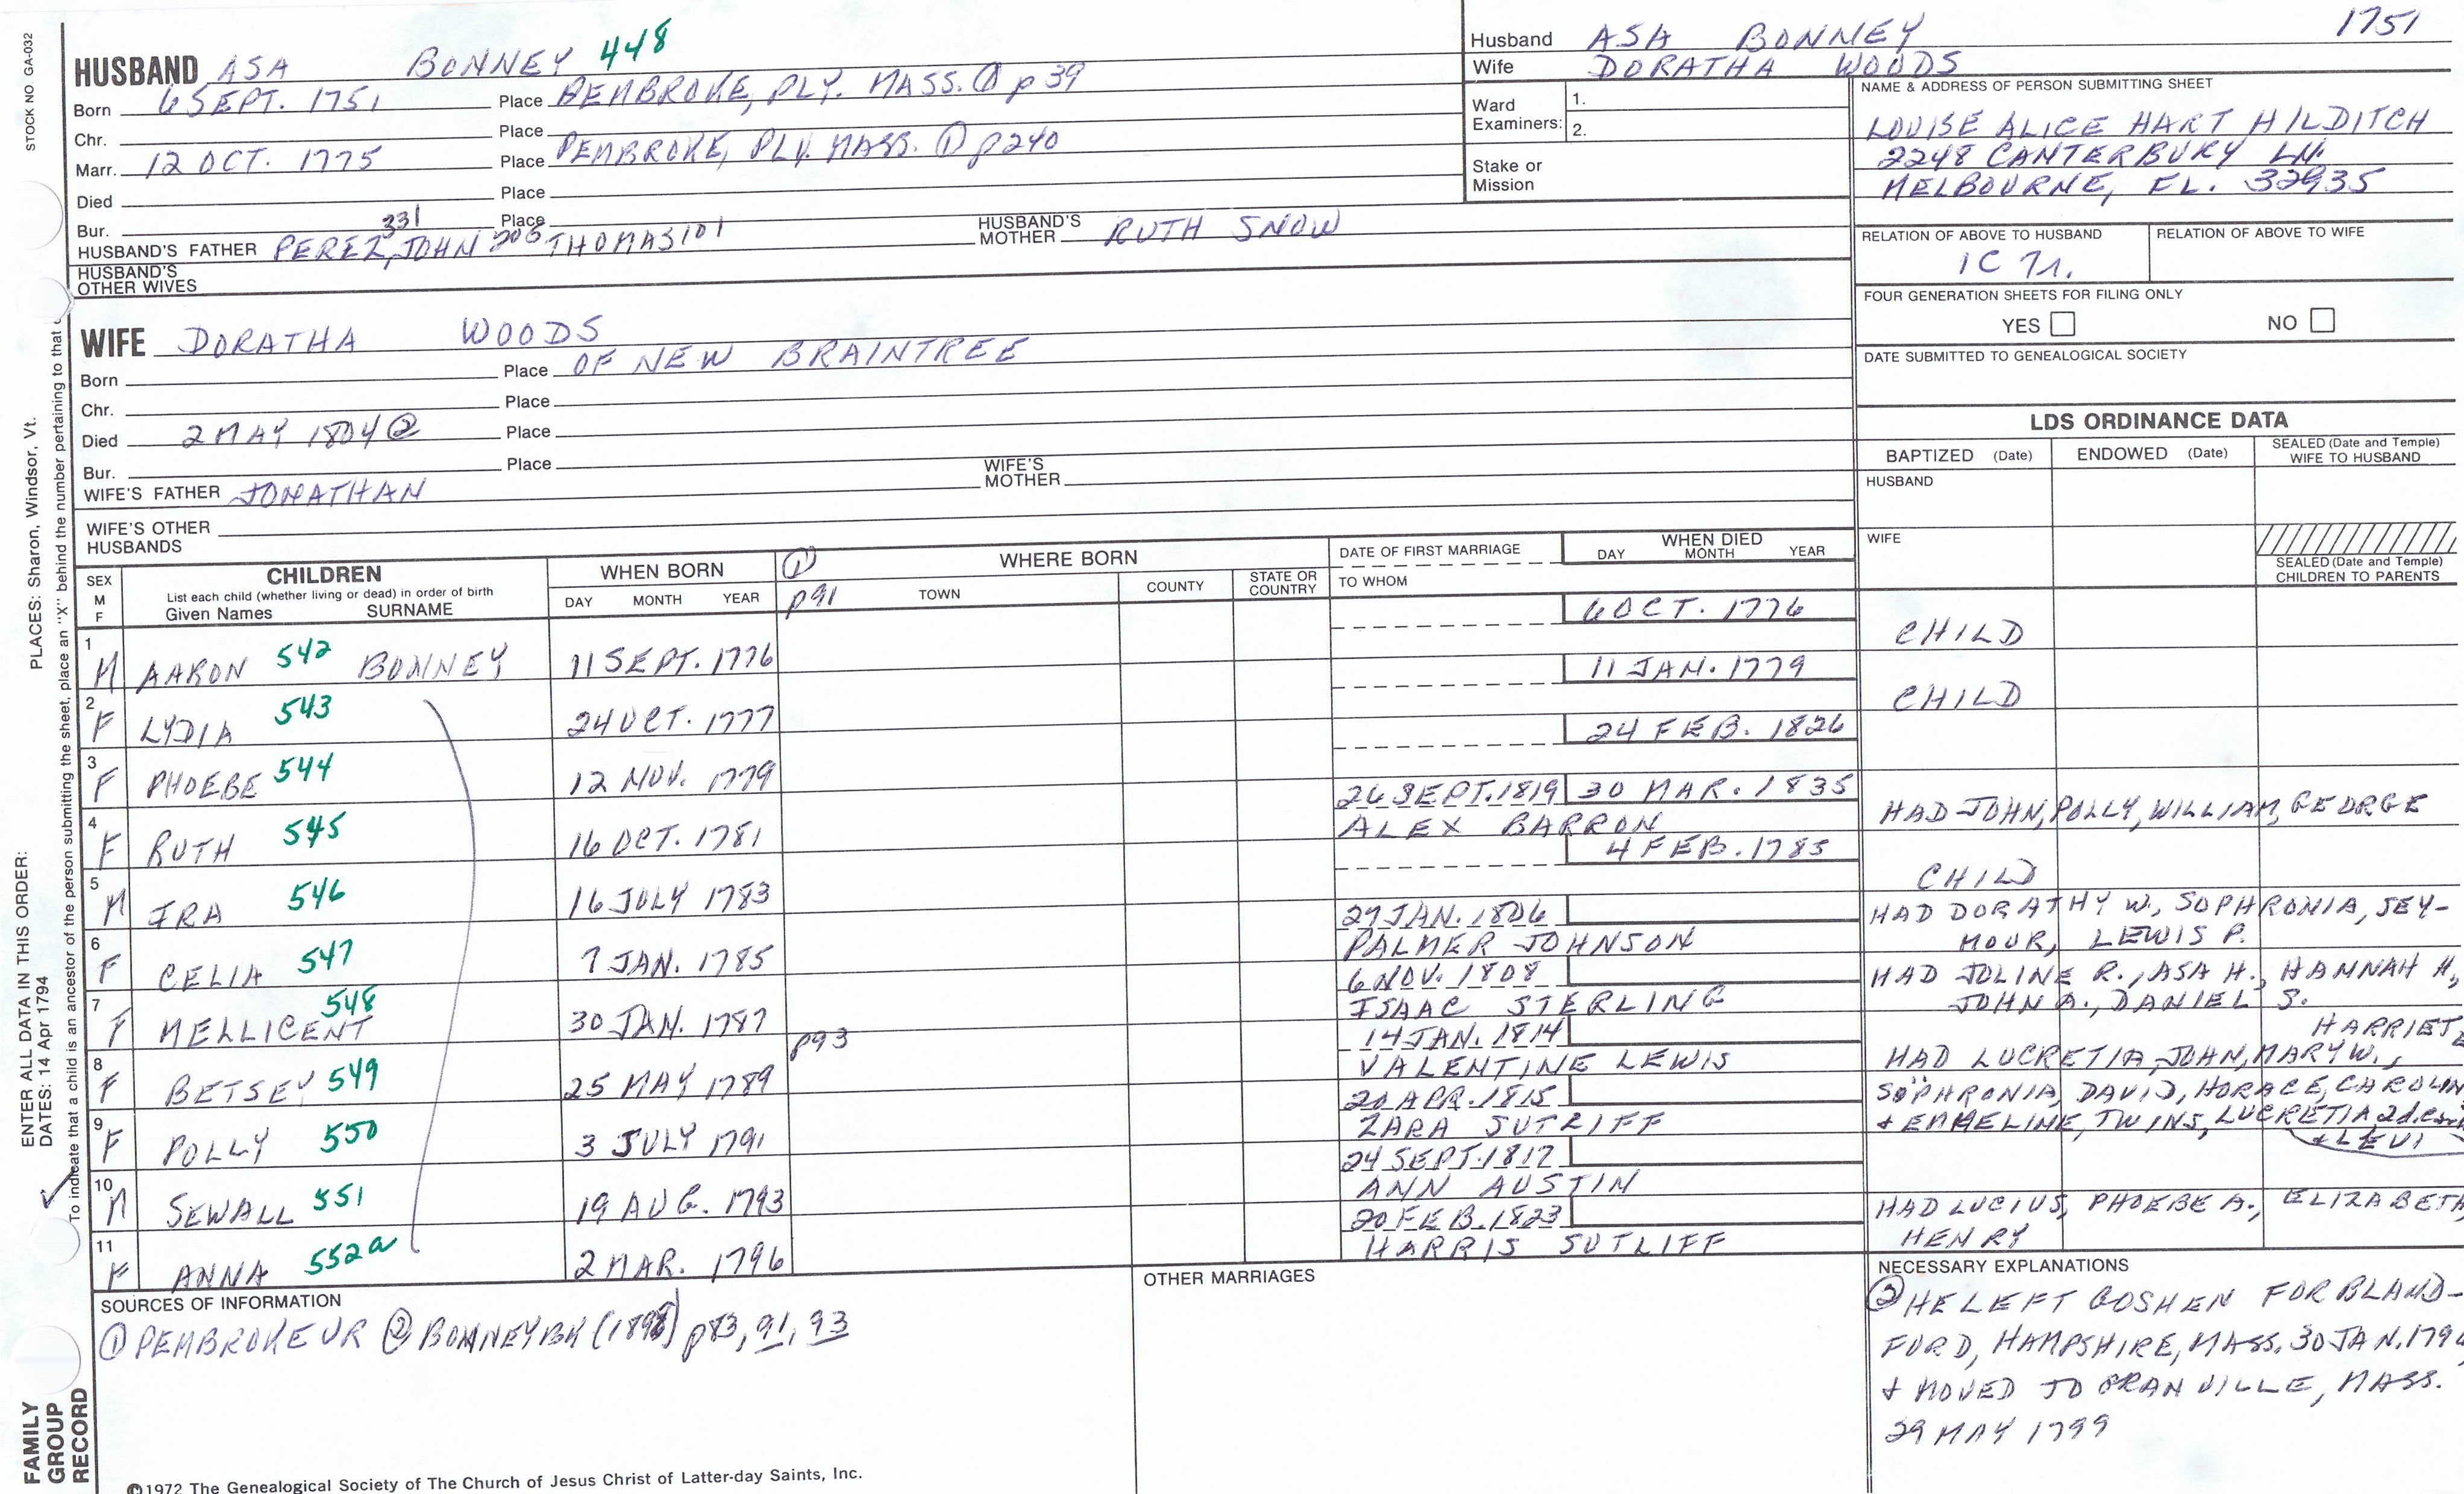 STOCK NO GA-032
HUSBAND ASA BONNEY 448
Born 6 SEPT. 1751 Place PEMBROKE, PLY. MASS. ① p 39
Chr. Place
Marr. 12 OCT. 1775 Place PEMBROKE, PLY. MASS. ① p240
Died Place
Bur. Place
HUSBAND'S FATHER PEREZ 331, JOHN 206 THOMAS 101 HUSBAND'S MOTHER RUTH SNOW
HUSBAND'S OTHER WIVES
WIFE DORATHA WOODS
Born Place OF NEW BRAINTREE
Chr. Place
Died 2 MAY 1804 ② Place
Bur. Place
WIFE'S FATHER JONATHAN WIFE'S MOTHER
WIFE'S OTHER HUSBANDS
Husband ASA BONNEY 1751
Wife DORATHA WOODS
Ward Examiners: 1.
2.
Stake or Mission
NAME & ADDRESS OF PERSON SUBMITTING SHEET
LOUISE ALICE HART HILDITCH
2248 CANTERBURY LN.
MELBOURNE, FL. 32935
RELATION OF ABOVE TO HUSBAND RELATION OF ABOVE TO WIFE
1C 7r.
FOUR GENERATION SHEETS FOR FILING ONLY
YES NO
DATE SUBMITTED TO GENEALOGICAL SOCIETY
LDS ORDINANCE DATA
BAPTIZED (Date) ENDOWED (Date) SEALED (Date and Temple) WIFE TO HUSBAND
HUSBAND
WIFE
SEALED (Date and Temple) CHILDREN TO PARENTS
SEX M F
CHILDREN
List each child (whether living or dead) in order of birth
Given Names SURNAME
WHEN BORN
DAY MONTH YEAR
① p91
WHERE BORN
TOWN COUNTY STATE OR COUNTRY
DATE OF FIRST MARRIAGE
TO WHOM
WHEN DIED
DAY MONTH YEAR
1 M AARON 542 BONNEY 11 SEPT. 1776 6 OCT. 1776 CHILD
2 F LYDIA 543 24 OCT. 1777 11 JAN. 1779 CHILD
3 F PHOEBE 544 12 NOV. 1779 24 FEB. 1826
4 F RUTH 545 16 OCT. 1781 26 SEPT. 1819 30 MAR. 1835
ALEX BARRON HAD JOHN, POLLY, WILLIAM, GEORGE
5 M IRA 546 16 JULY 1783 4 FEB. 1785 CHILD
6 F CELIA 547 7 JAN. 1785 27 JAN. 1806 HAD DORATHY W., SOPHRONIA, SEY-
PALMER JOHNSON MOUR, LEWIS P.
7 F MELLICENT 548 30 JAN. 1787 6 NOV. 1808 HAD JOLINE R., ASA H., HANNAH H,
ISAAC STERLING JOHN A., DANIEL S.
p93
8 F BETSEY 549 25 MAY 1789 14 JAN. 1814 HARRIET
VALENTINE LEWIS HAD LUCRETIA, JOHN, MARY W.,
9 F POLLY 550 3 JULY 1791 20 APR. 1815 SOPHRONIA, DAVID, HORACE, CAROLIN
ZARA SUTLIFF + EMMELINE, TWINS, LUCRETIA 2d.
+ LEVI
10 M SEWALL 551 19 AUG. 1793 24 SEPT. 1817
ANN AUSTIN
11 F ANNA 552a 2 MAR. 1796 20 FEB. 1823 HAD LUCIUS, PHOEBE A., ELIZABETH
HARRIS SUTLIFF HENRY
SOURCES OF INFORMATION
① PEMBROKE VR ② BONNEY BK (1898) p83, 91, 93
OTHER MARRIAGES
NECESSARY EXPLANATIONS
② HE LEFT GOSHEN FOR BLAND-
FORD, HAMPSHIRE, MASS. 30 JAN. 179
+ MOVED TO GRANVILLE, MASS.
29 MAY 1799
ENTER ALL DATA IN THIS ORDER: PLACES: Sharon, Windsor, Vt.
DATES: 14 Apr 1794
To indicate that a child is an ancestor of the person submitting the sheet, place an "X" behind the number pertaining to that c
FAMILY GROUP RECORD
©1972 The Genealogical Society of The Church of Jesus Christ of Latter-day Saints, Inc.